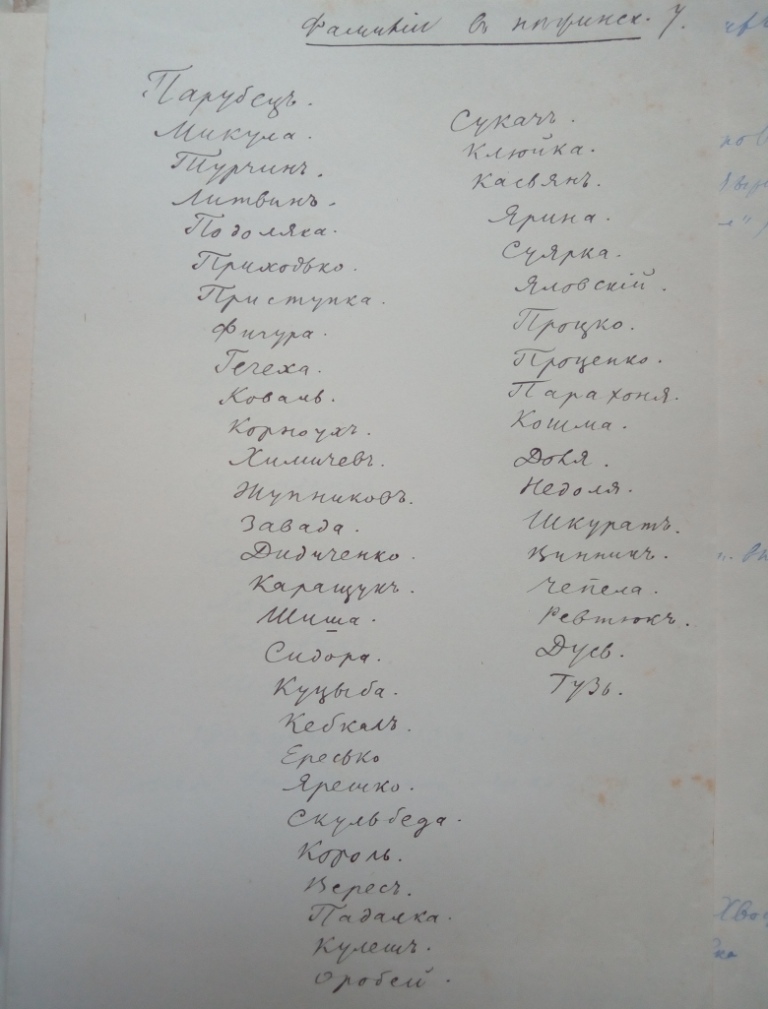 Фамиліи в У.
Парубецъ.
Микула.
Турчинъ.
Литвинъ.
Подоляка.
Приходько.
Приступка.
Фигура.
Гечеха.
Коваль.
Корноухъ.
Химичевъ.
Жупниковъ.
Завада.
Дидиченко.
Каращукъ.
Шиша.
Сидора.
Куцыба.
Кебкалъ.
Ересько
Ярешко.
Скульбеда.
Король.
Вересъ.
Падалка.
Кулешъ.
Оробей.
Сукачъ.
Клюйка.
Касьянъ.
Ярина.
Суярка.
Яловскій.
Процко.
Проценко.
Парахоня.
Кошма.
Довя.
Недоля.
Шкуратъ.
Чепела.
Ревтюкъ.
Дусь.
Тузь.